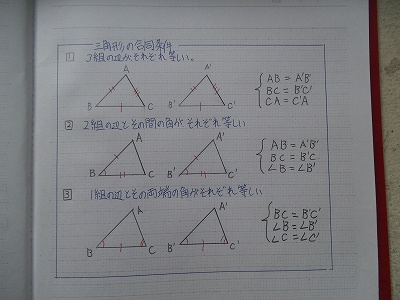 三角形の合同条件
1 3組の辺がそれぞれ等しい。
A A'
B C B' C'
AB = A'B'
BC = B'C'
CA = C'A
2 2組の辺とその間の角がそれぞれ等しい
A A'
B C B' C'
AB = A'B'
BC = B'C
∠B = ∠B'
3 1組の辺とその両端の角がそれぞれ等しい
A A'
B C B' C'
BC = B'C'
∠B = ∠B'
∠C = ∠C'